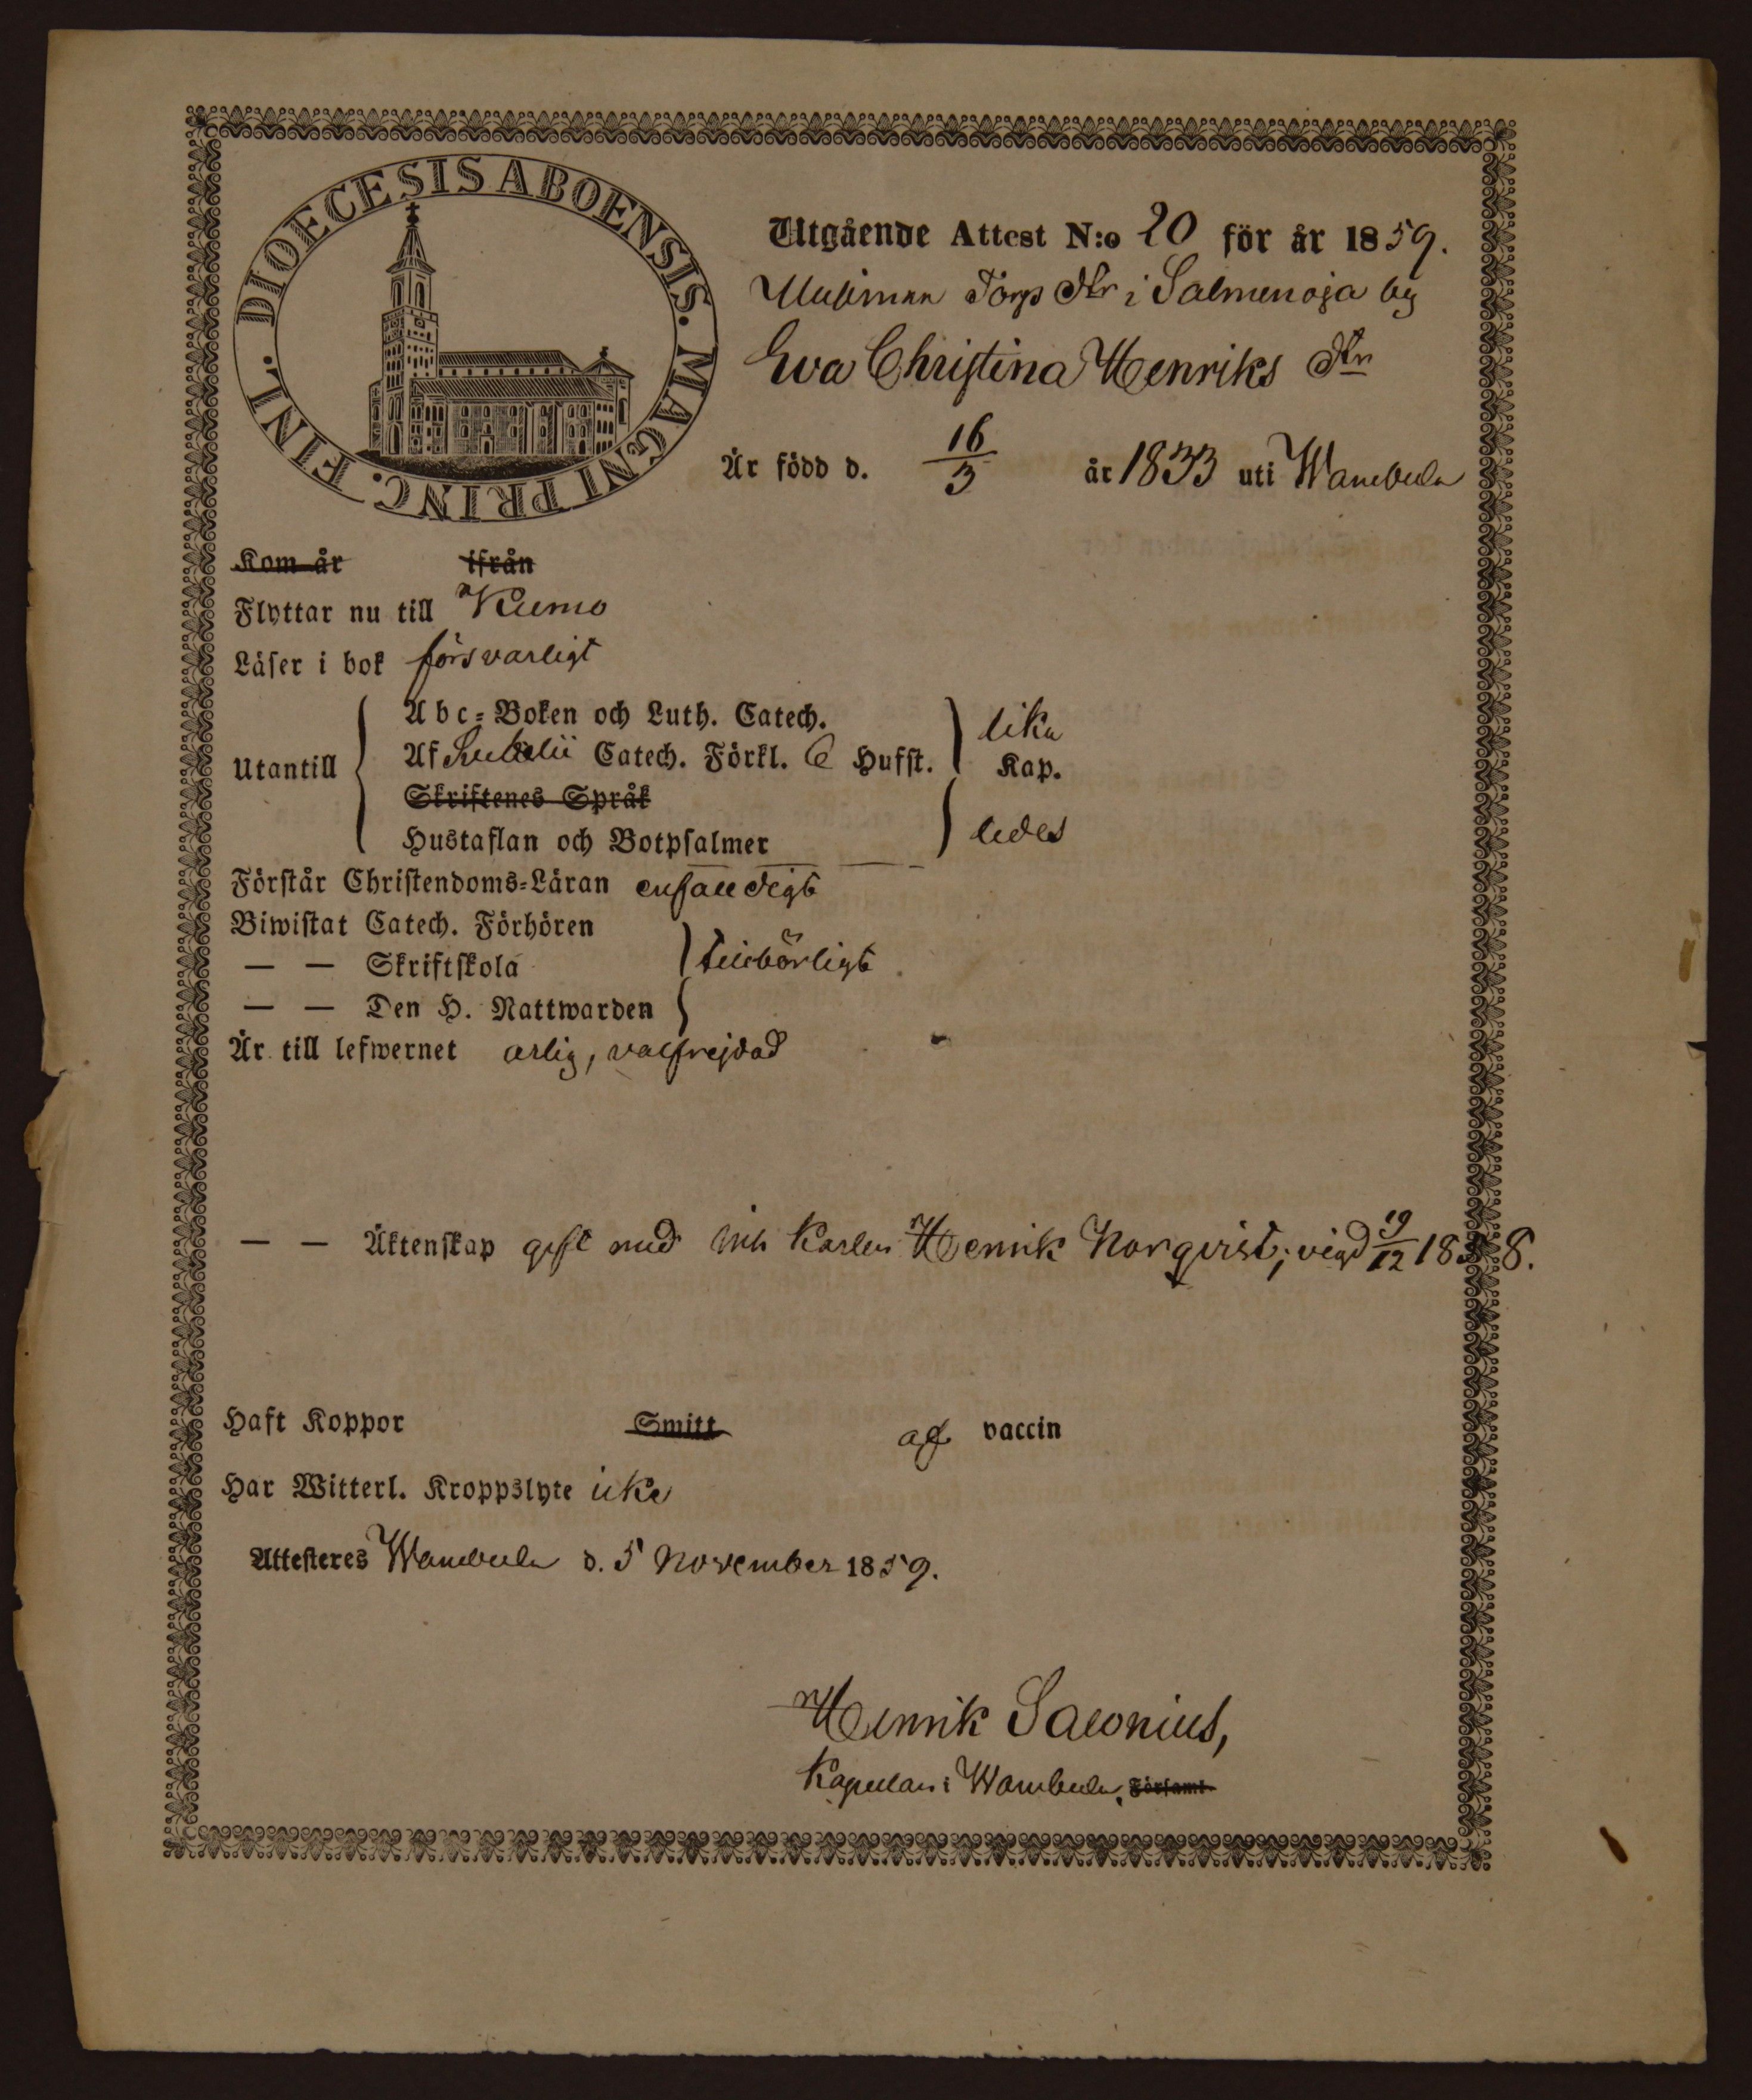 DIOECESIS ABOENSIS. MAGNI PRINC. FINL.
Utgående Attest N:o 20 för år 1859.
Torps dtr i Salmenoja by
Eva Christina Henriks dtr
Är född d. 16/3 år 1833 uti Wambula
Kom år ifrån
Flyttar nu till Kumo
Läser i bok försvarligt
Abc-Boken och Luth. Catech. lika
Utantill Af Catech. Förkl. 6 Hufst. Kap.
Skriftenes Språk
Hustaflan och Botpsalmer ledes
Förstår Christendoms-Läran enfaldigt
Biwistat Catech. Förhören
— — Skriftskola tillbörligt
— — Den H. Nattwarden
Är till lefwernet ärlig, välfrejdad
— — Äktenskap gift med Karlen Henrik Norqvist; vigd 19/12 1858.
Haft Koppor Smitt af vaccin
Har Witterl. Kroppslyte icke
Attesteres Wambula d. 5 November 1859.
Henrik Salonius,
Kapellan i Wambula. Församl.